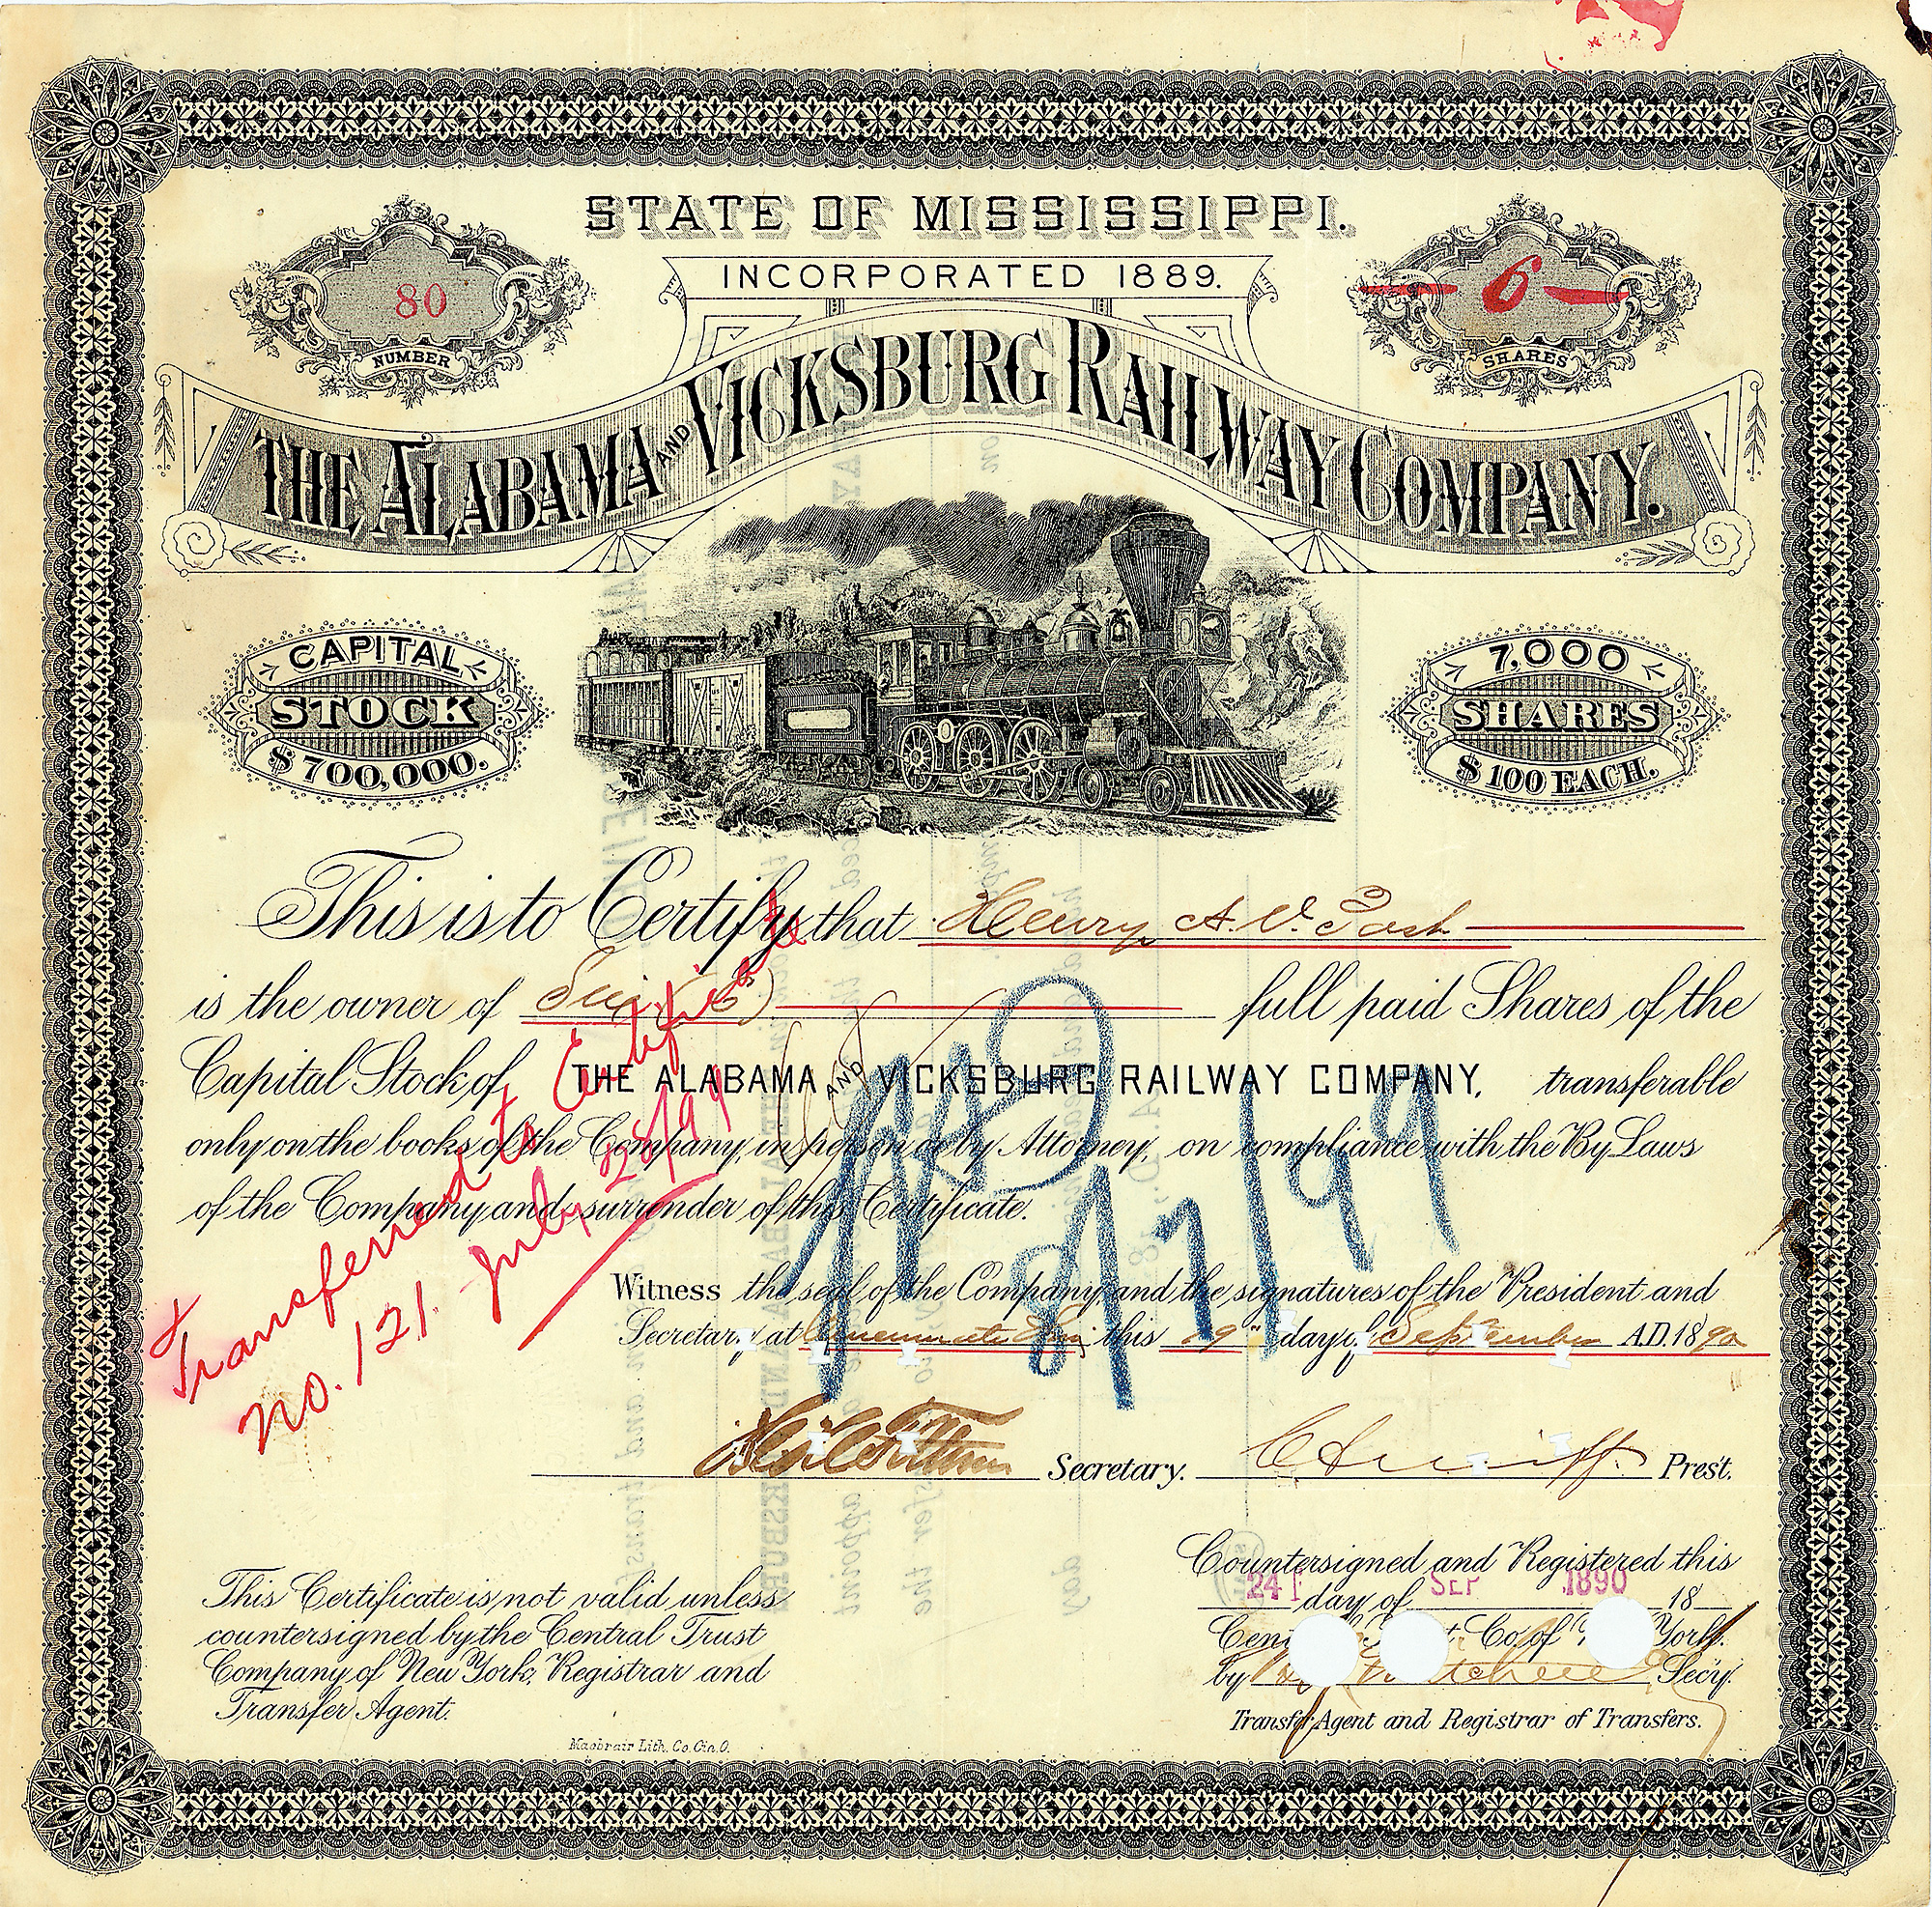 STATE OF MISSISSIPPI.
INCORPORATED 1889.
80
NUMBER
6
SHARES
THE ALABAMA AND VICKSBURG RAILWAY COMPANY.
CAPITAL
STOCK
$700,000.
7,000
SHARES
$100 EACH.
This is to Certify that Henry A. V. Post
is the owner of Six (6) full paid Shares of the
Capital Stock of THE ALABAMA AND VICKSBURG RAILWAY COMPANY, transferable
only on the books of the Company, in person or by Attorney, on compliance with the By Laws
of the Company and surrender of this Certificate.
Transferred to Certificate
No. 121. July 28/99
8/7/99
Witness the seal of the Company and the signatures of the President and
Secretary at Cincinnati this 19" day of September A.D. 1890
Secretary. Prest.
Countersigned and Registered this
24 day of SEP 1890 18
Central Trust Co of New York.
by Secy.
Transfer Agent and Registrar of Transfers.
This Certificate is not valid unless
countersigned by the Central Trust
Company of New York, Registrar and
Transfer Agent.
Macbrair Lith. Co. Cin. O.